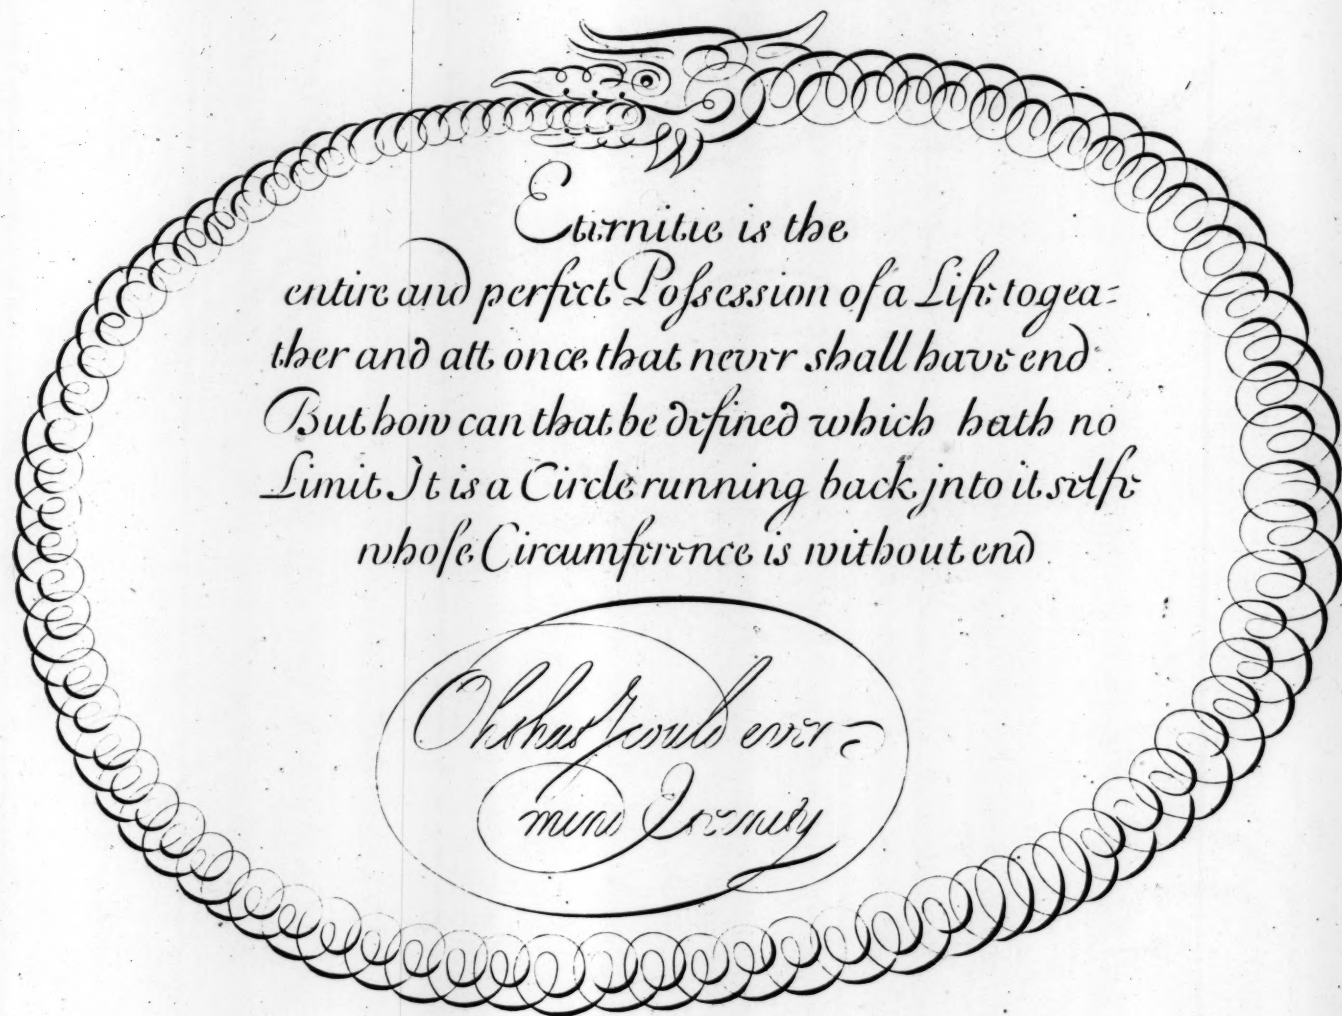 Eternitie is the
entire and perfect Poſsession of a Life togea=
ther and att once that never shall have end
But how can that be defined which hath no
Limit It is a Circle running back jnto it selfe
whoſe Circumference is without end
Oh that I could ever-
mind Eternity